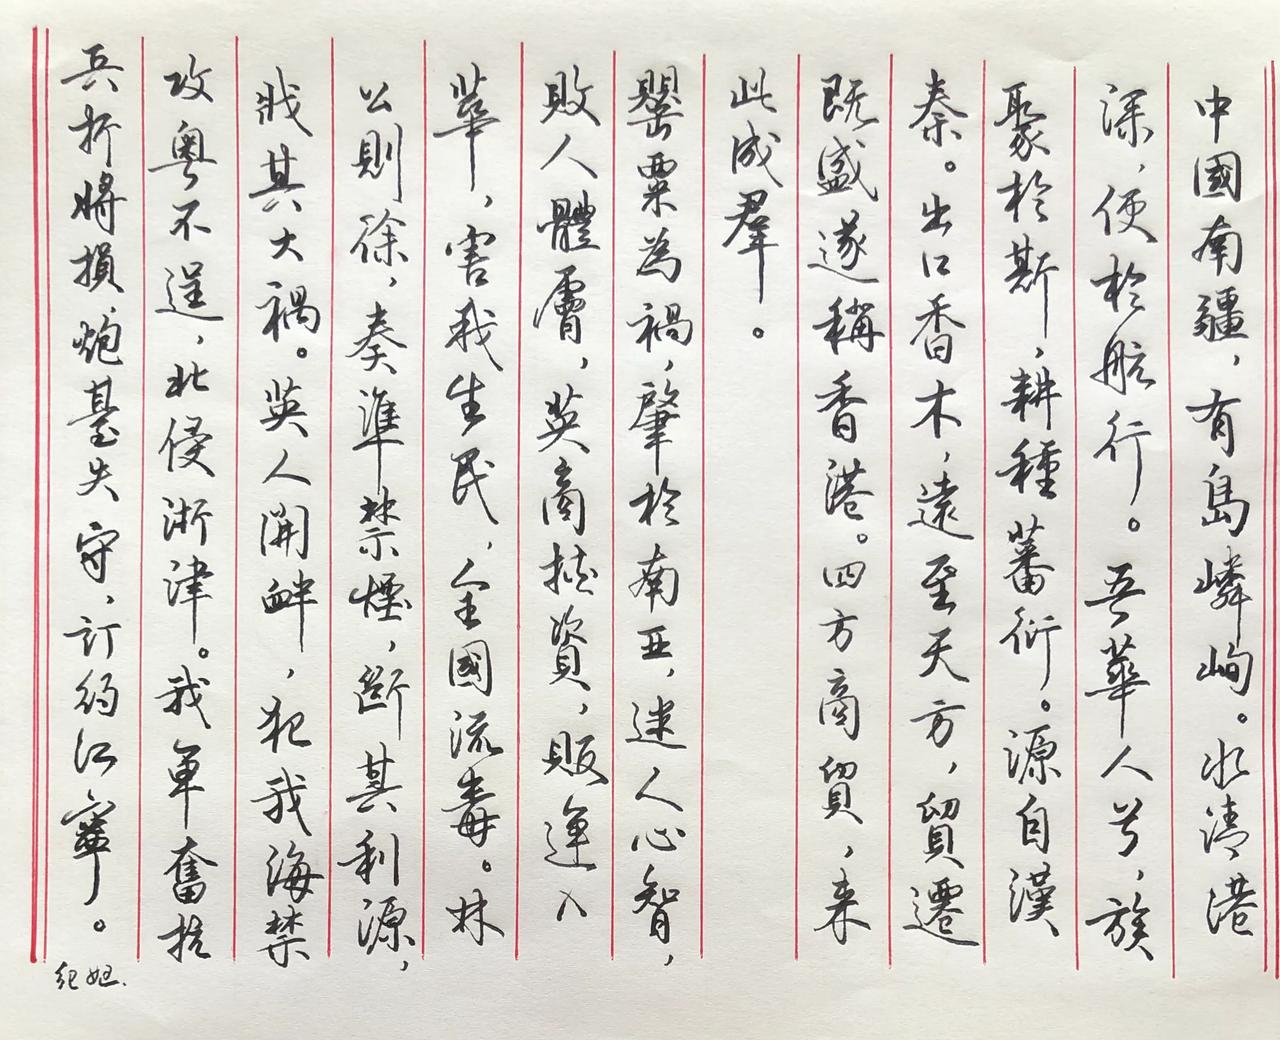 中國南疆，有島嶙峋。水清港
深，便於航行。吾華人兮，族
聚於斯，耕種蕃衍。源自漢
秦。出口香木，遠至天方，貿遷
既盛遂稱香港。四方商貿，来
此成羣。
罌粟為禍，肇於南亞，迷人心智，
敗人體膚，英商揸資，販運入
華，害我生民，全國流毒。林
公則徐，奏準禁煙，斷其利源，
戕其大禍。英人開衅，犯我海禁
攻粤不逞，北侵浙津。我軍奮抗
兵折將損，炮臺失守，訂約江寧。